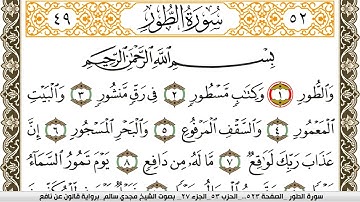 ٥٢ سُورَةُ الطُّورِ ٤٩
بِسْمِ اللَّهِ الرَّحْمَٰنِ الرَّحِيمِ
وَالطُّورِ ١ وَكِتَٰبٍ مَّسْطُورٍ ٢ فِي رَقٍّ مَّنشُورٍ ٣ وَالْبَيْتِ
الْمَعْمُورِ ٤ وَالسَّقْفِ الْمَرْفُوعِ ٥ وَالْبَحْرِ الْمَسْجُورِ ٦ إِنَّ
عَذَابَ رَبِّكَ لَوَٰقِعٌ ٧ مَّا لَهُ مِن دَافِعٍ ٨ يَوْمَ تَمُورُ السَّمَآءُ
سورة الطور_الصفحة ٥٢٣_ الحزب ٥٣_الجزء ٢٧_ بصوت الشيخ مجدي سالم_ برواية قالون عن نافع